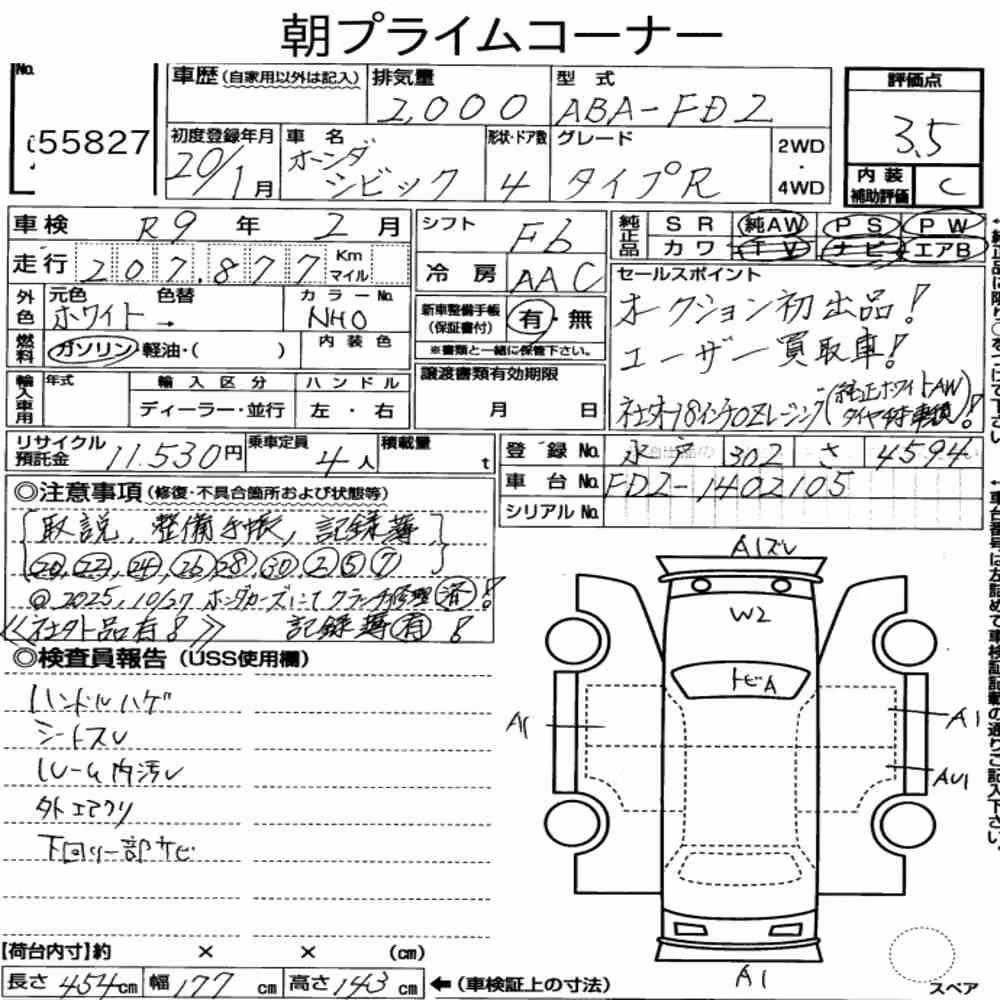 朝プライムコーナー
No.
55827
車歴(自家用以外は記入)
排気量
2,000
型式
ABA-FD2
評価点
3.5
初度登録年月
20/1月
車名
ホンダ
シビック
形状・ドア数
4
グレード
タイプR
2WD
・
4WD
内装
補助評価
C
車検 R9年 2月
走行 207,877 Km マイル
シフト F6
冷房 AAC
純正品 SR 純AW PS PW
カワ TV ナビ エアB
外色 元色 色替 カラーNo.
ホワイト → NH0
燃料 ガソリン・軽油・( ) 内装色
新車整備手帳
(保証書付)
有・無
※書類と一緒に保管下さい。
セールスポイント
オークション初出品!
ユーザー買取車!
社外18インチOZレーシング(純正ホワイトAW
タイヤ付車積)!
輸入車用 年式 輸入区分 ハンドル
ディーラー・並行 左・右
譲渡書類有効期限
月 日
リサイクル
預託金 11,530円
乗車定員 4人
積載量 t
登録No. 302 さ 4594
車台No. FD2-1402105
シリアルNo.
◎注意事項(修復・不具合箇所および状態等)
取説、整備手帳、記録簿
⑳,㉒,㉔,㉖,㉘,㉚,②⑤⑦
@2025,10/27 ホンダカーズにてクラッチ修理済!
≪社外品有!≫ 記録簿有!
◎検査員報告(USS使用欄)
ハンドルハゲ
シートスレ
ルーム内汚レ
外エアクリ
下回り一部サビ
A1ズレ
W2
トビA
A1
A1
AU1
A1
【荷台内寸】約 × × (cm)
長さ 454cm 幅 177cm 高さ 143cm ←(車検証上の寸法)
スペア
車台番号は左詰めで車検証記載の通りご記入下さい。